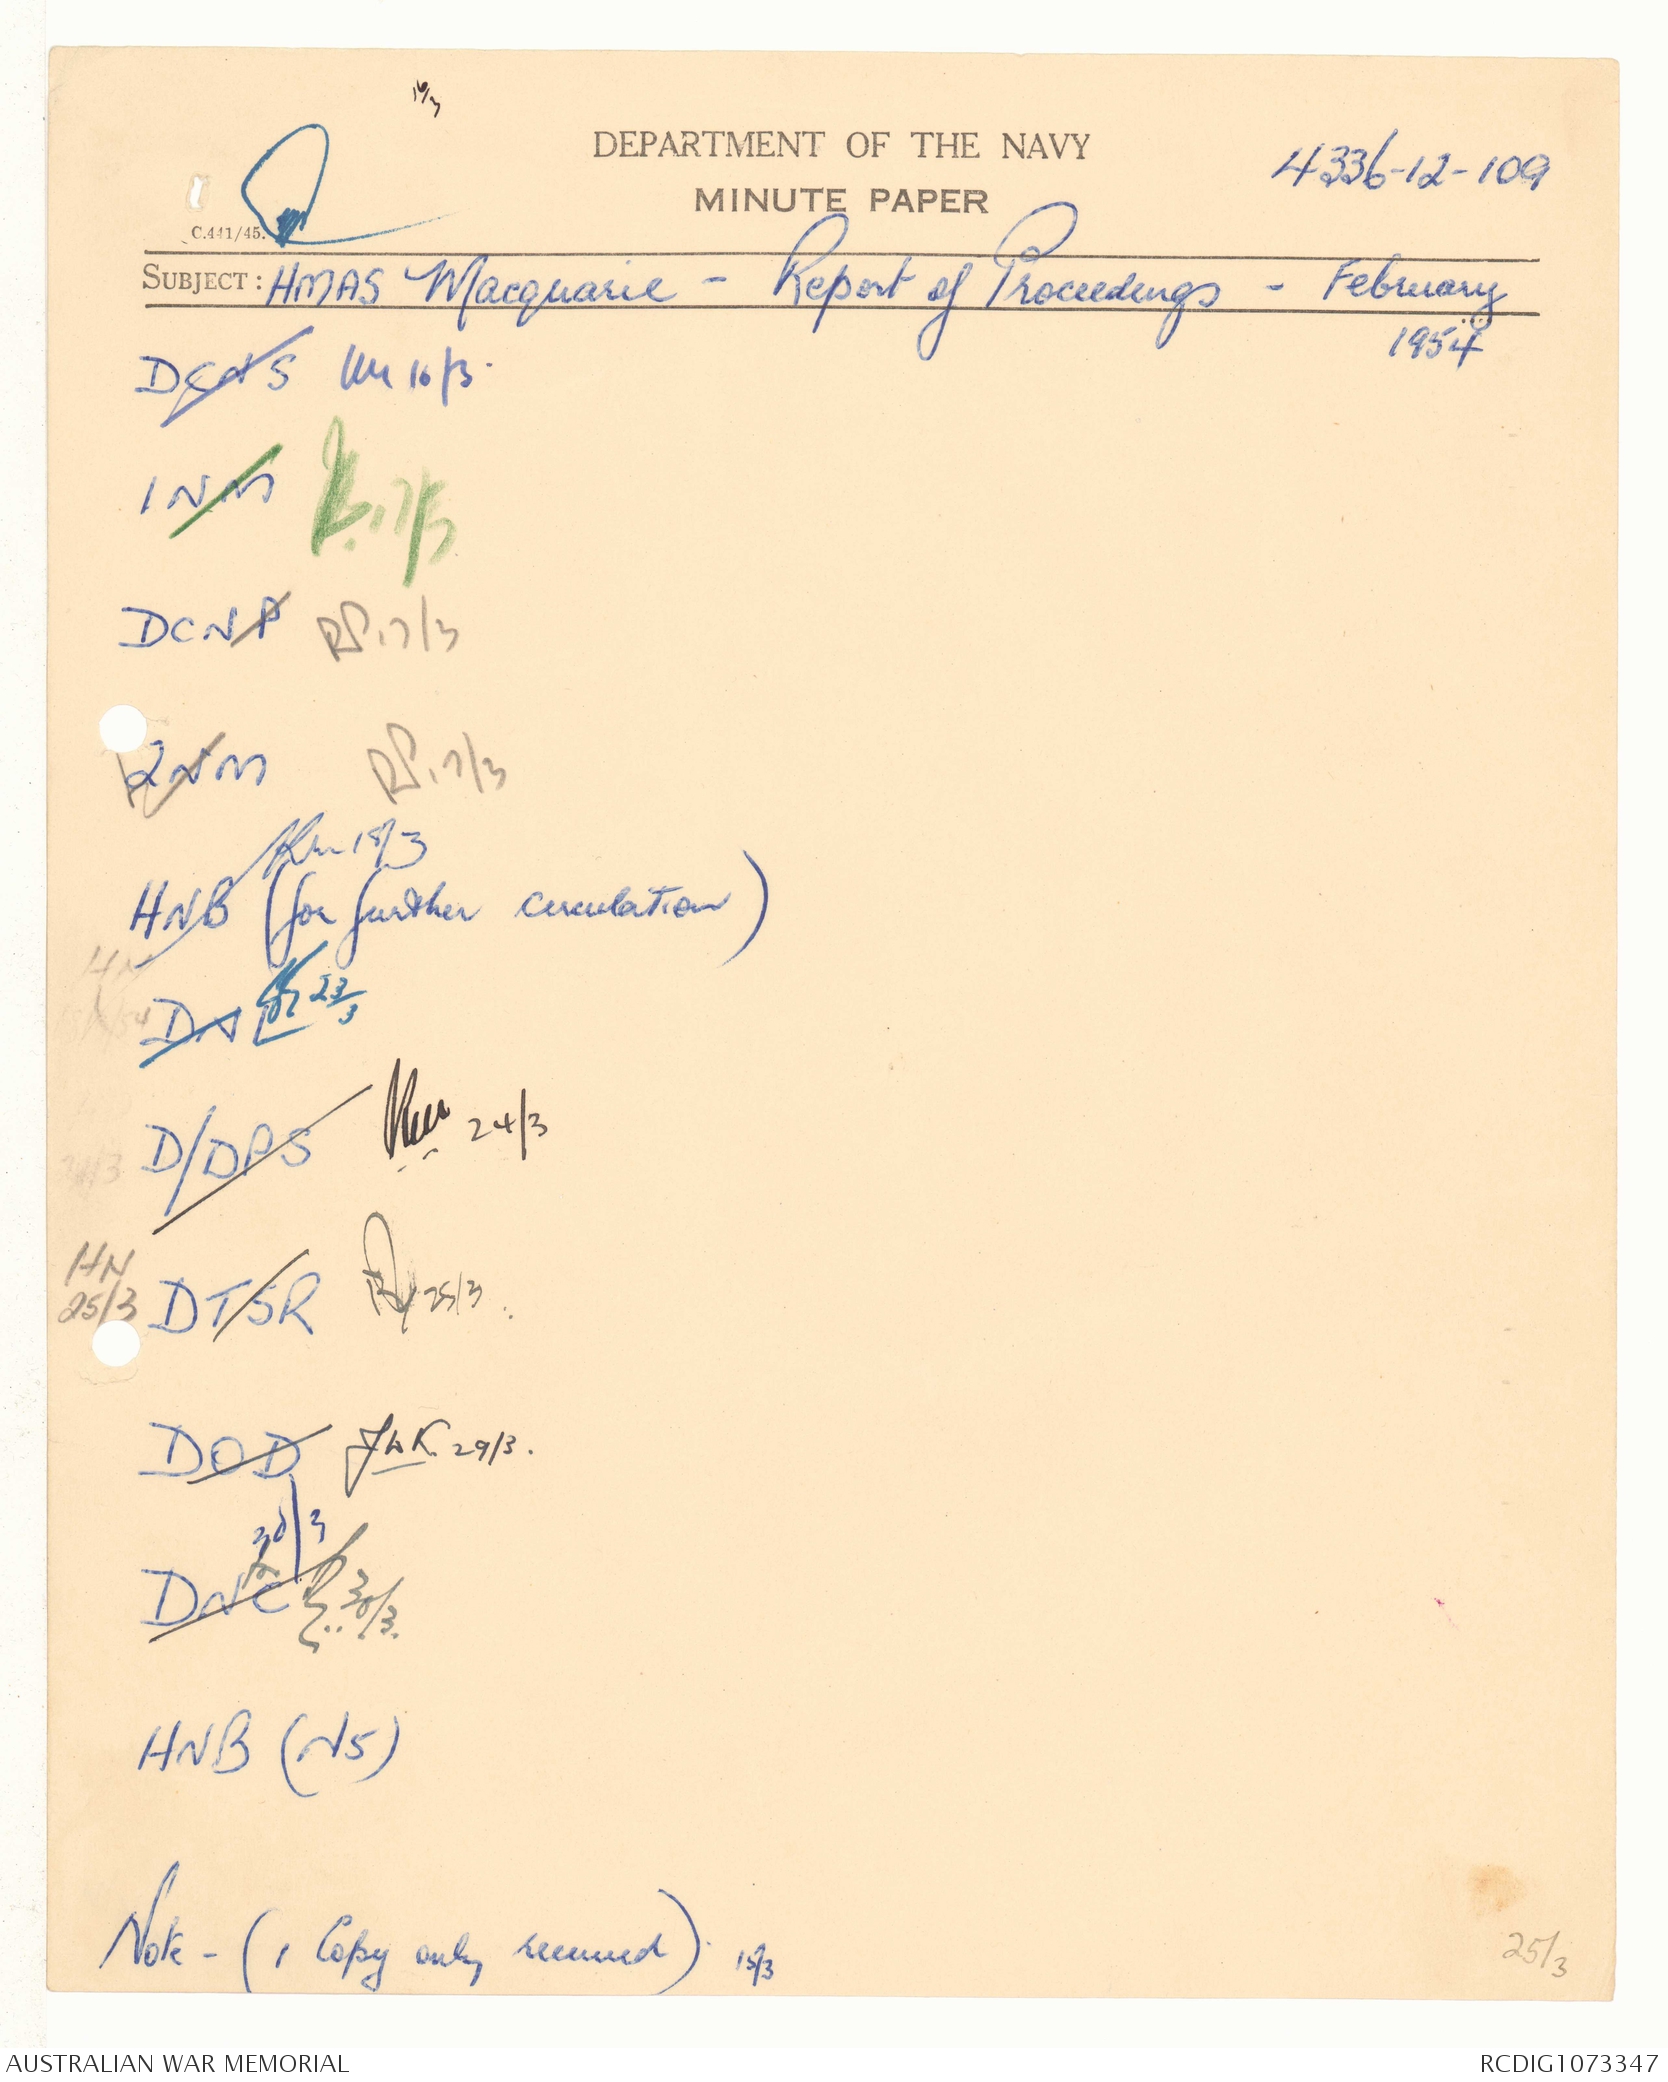 16/3
DEPARTMENT OF THE NAVY
4336-12-109
MINUTE PAPER
C.441/45.
SUBJECT: HMAS Macquarie - Report of Proceedings - February
1954
DCNS 16/3.
1NM 17/3
DCNP RS. 17/3
2NM RS. 17/3
18/3
HNB (for further circulation)
HN
DA 23/3
D/DPS 24/3
24/3
HN
25/3 DTSR 25/3.
DOD JWK. 29/3.
30/3
DNC 30/3.
HNB (N5)
Note - (1 Copy only received). 15/3
25/3
AUSTRALIAN WAR MEMORIAL
RCDIG1073347